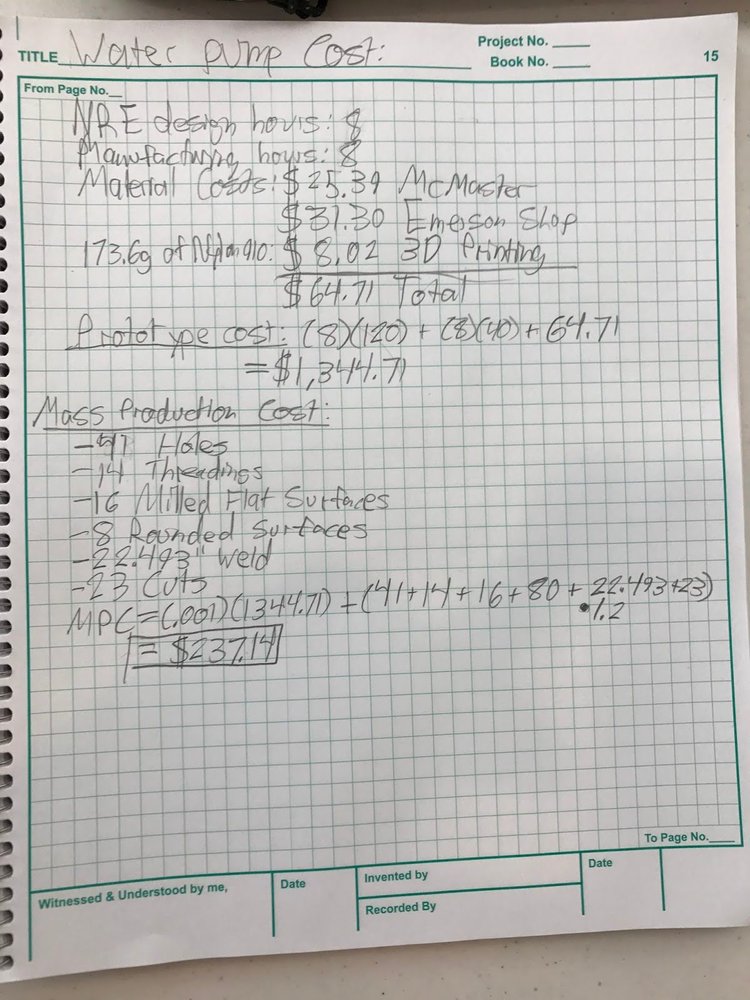 TITLE Water pump Cost:
Project No.
Book No.
15
From Page No.
NRE design hours: 8
Manufacturing hours: 8
Material Costs: $25.39 McMaster
$31.30 Emerson Shop
173.6g of Nylon 910: $8.02 3D Printing
$64.71 Total
Prototype cost: (8)(120) + (8)(40) + 64.71
= $1,344.71
Mass Production Cost:
-41 Holes
-14 Threadings
-16 Milled Flat Surfaces
-8 Rounded Surfaces
-22.493" weld
-23 Cuts
MPC = (.001)(1344.71) + (41+14+16+80+22.493+23)
•1.2
= $237.14
To Page No.
Witnessed & Understood by me,
Date
Invented by
Recorded By
Date